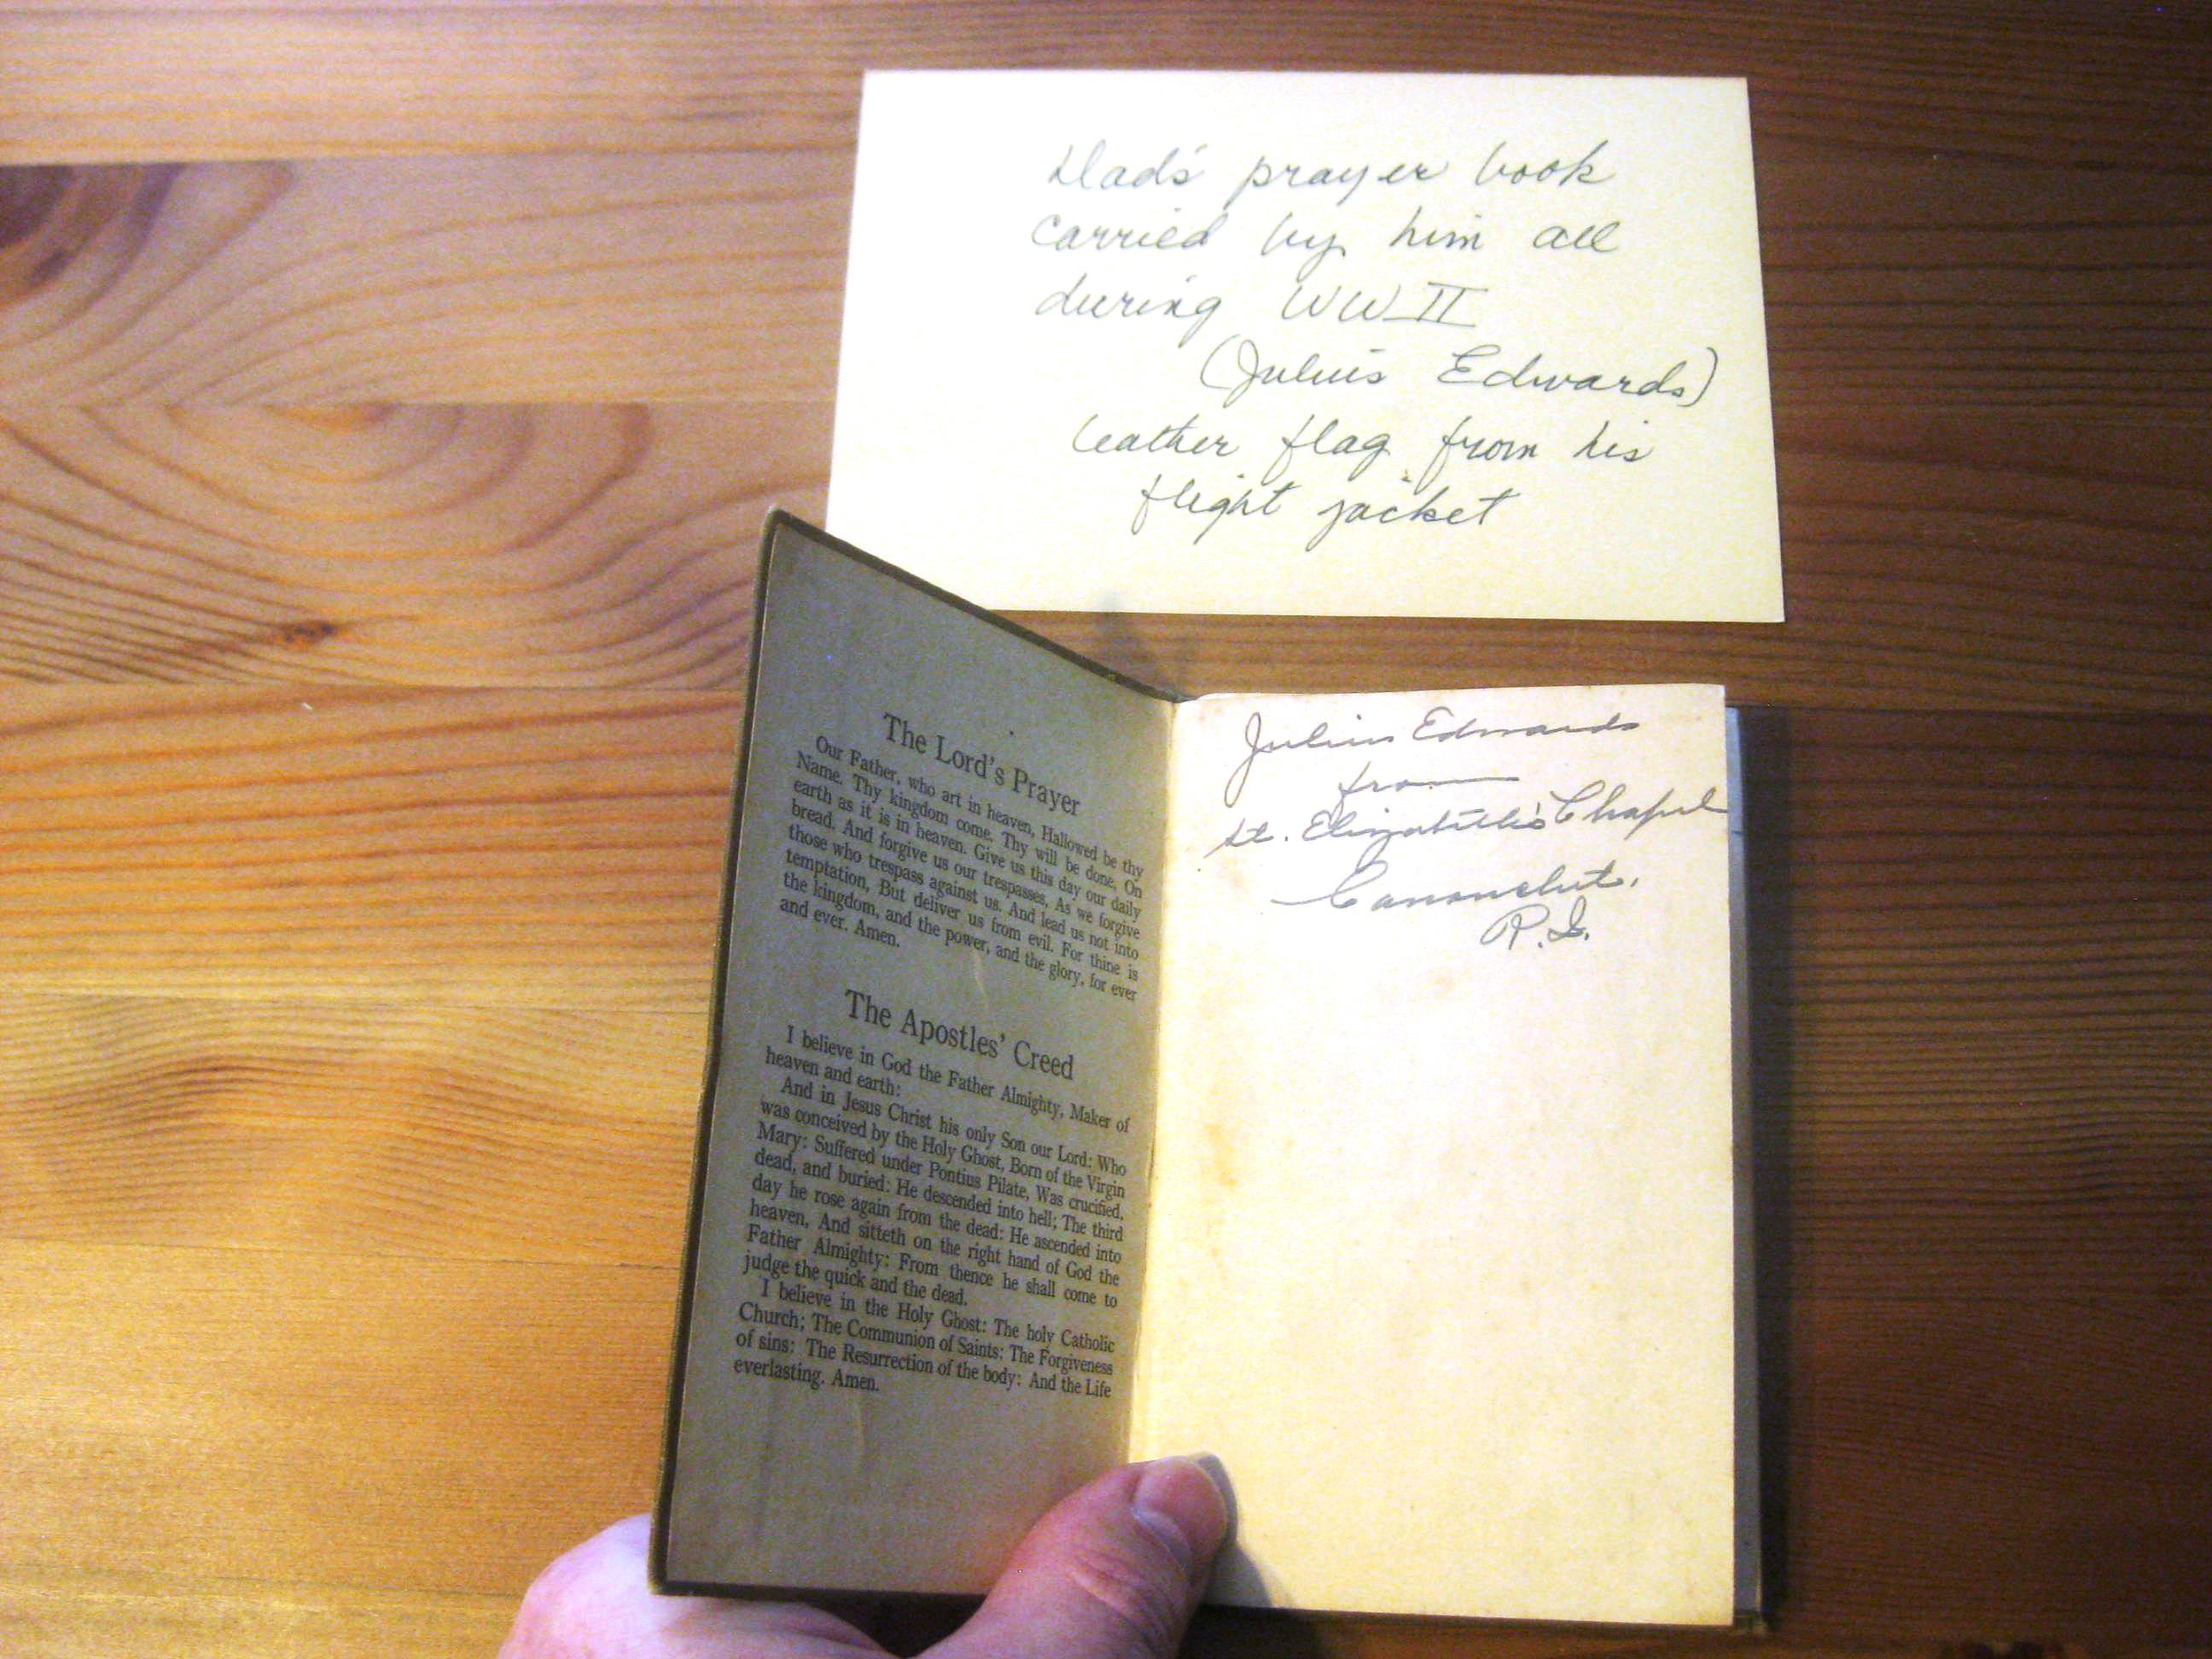 Dad's prayer book
carried by him all
during WW II
(Julius Edwards)
leather flag from his
flight jacket
The Lord's Prayer
Our Father, who art in heaven, Hallowed be thy
Name. Thy kingdom come. Thy will be done, On
earth as it is in heaven. Give us this day our daily
bread. And forgive us our trespasses, As we forgive
those who trespass against us. And lead us not into
temptation, But deliver us from evil. For thine is
the kingdom, and the power, and the glory, for ever
and ever. Amen.
The Apostles' Creed
I believe in God the Father Almighty, Maker of
heaven and earth:
And in Jesus Christ his only Son our Lord: Who
was conceived by the Holy Ghost, Born of the Virgin
Mary: Suffered under Pontius Pilate, Was crucified,
dead, and buried: He descended into hell; The third
day he rose again from the dead: He ascended into
heaven, And sitteth on the right hand of God the
Father Almighty: From thence he shall come to
judge the quick and the dead.
I believe in the Holy Ghost: The holy Catholic
Church; The Communion of Saints: The Forgiveness
of sins: The Resurrection of the body: And the Life
everlasting. Amen.
Julius Edwards
from
St. Elizabeth's Chapel
Canonchet,
R.I.